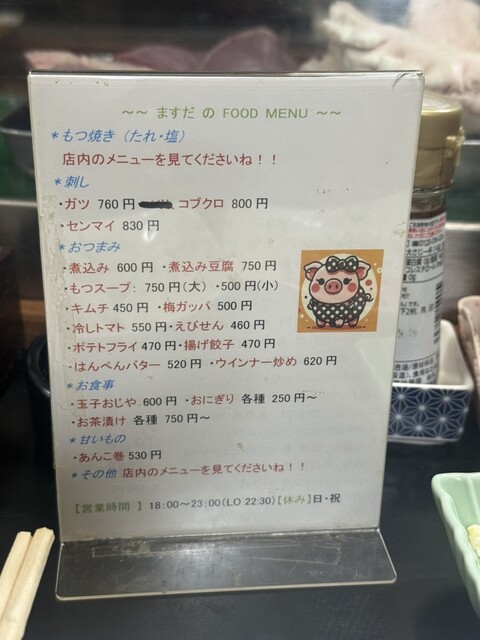 ~~ ますだ の FOOD MENU ~~
*もつ焼き (たれ・塩)
店内のメニューを見てくださいね！！
*刺し
・ガツ 760円 コブクロ 800円
・センマイ 830円
*おつまみ
・煮込み 600円 ・煮込み豆腐 750円
・もつスープ： 750円(大) ・500円(小)
・キムチ 450円 ・梅ガッパ 500円
・冷しトマト 550円・えびせん 460円
・ポテトフライ 470円・揚げ餃子 470円
・はんぺんバター 520円 ・ウインナー炒め 620円
*お食事
・玉子おじや 600円 ・おにぎり 各種 250円～
・お茶漬け 各種 750円～
*甘いもの
・あんこ巻 530円
*その他 店内のメニューを見てくださいね！！
【営業時間 】 18:00～23:00(LO 22:30)【休み】日・祝